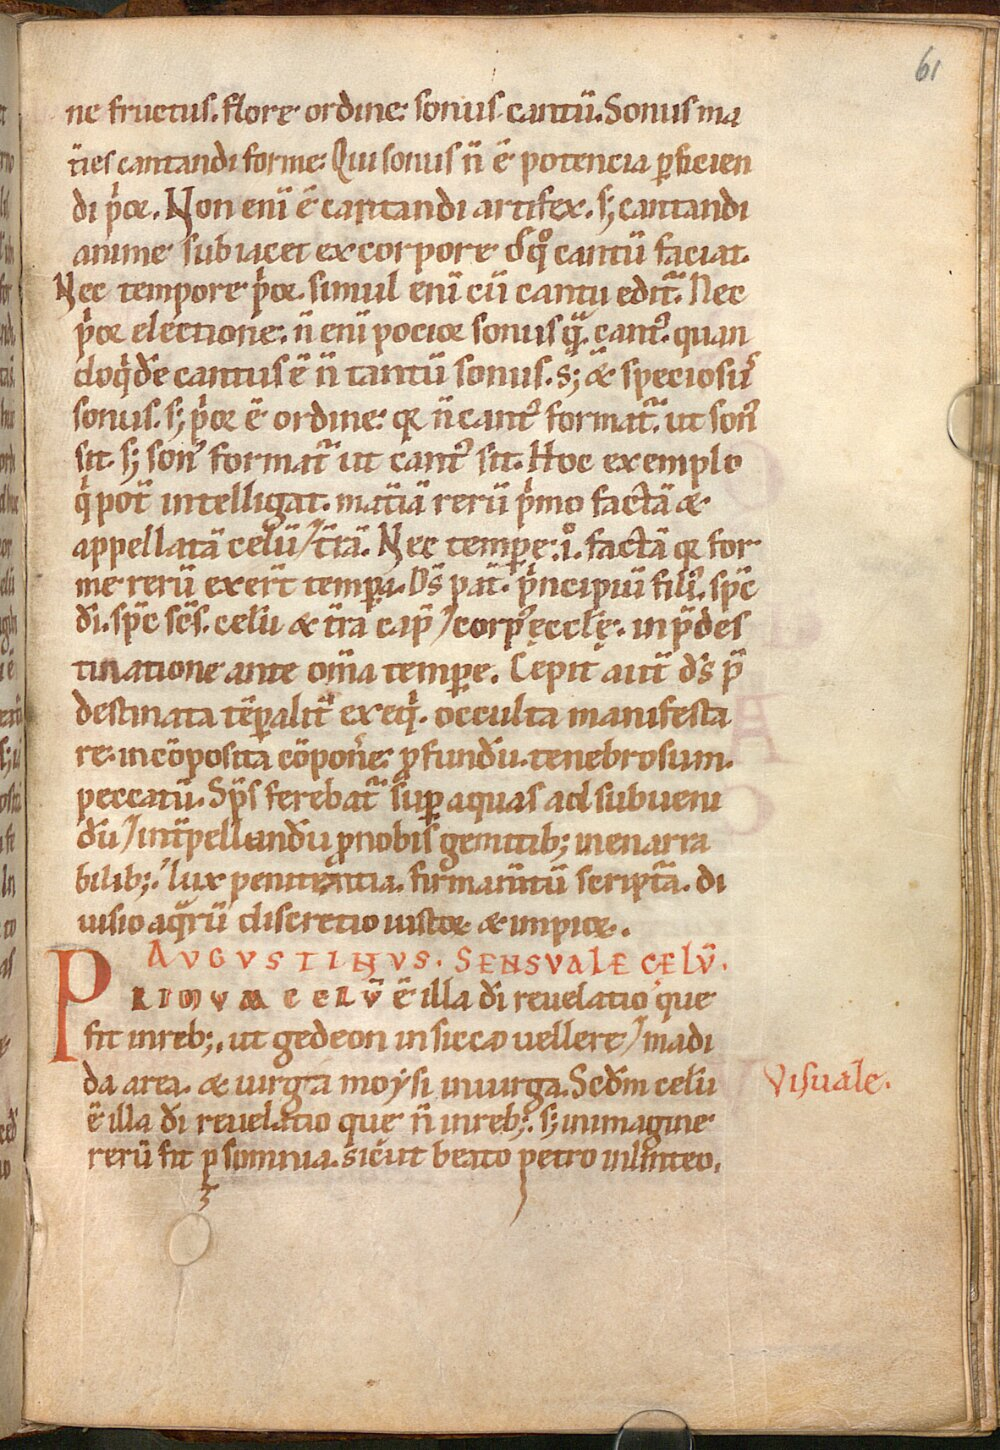 61
ne fructus. flore ordine: sonus cantū. Sonus ma
t̄ies cantandi forme: Qui sonus n̄ ē potencia ꝑficien
di p'or. Non eni ē cantandi artifex. s; cantandi
anime subiacet ex corpore d̄ qͦ cantū faciat.
Nec tempore p'or. simul eni cū cantu edit᷑. Nec
p'or electione: n̄ eni pocior sonus q̄. cant᷒. quan
doq'dē cantus ē n̄ tantū sonus. s; & speciosus
sonus. s; p'or ē ordine: qr n̄ cant᷒ format᷑. ut son᷒
sit. s; son᷒ format᷑ ut cant᷒ sit. Hoc exemplo
q' pot̄ intelligat. mat̄iā rerū p'mo factā &
appellatā celū / t̄rā. Nec temꝑe: i͘. factā qr for
me rerū exer̄t temꝑa. D̄s pat̄. p'ncipiū fili᷒. sp̄c
d̄i. sp̄c sc̄s. celū & t̄ra cap̄ / corp᷒ ęcclę. in p̄des
tinatione ante om̄a temꝑe. Cępit aut̄ d̄s p̄
destinata tēꝑalit̄ exeq'. occulta manifesta
re: incōposita cōpon̄e: ꝓfundū. tenebrosum.
peccatū. Sp̄s ferebat᷑ suꝑ aquas ad subueni
d̄ū / int̄pellandū ꝓ nobis gemitib; inenarra
bilib; lux penitentia. firmam̄tū scriptā. di
uisio aq̄rū discretio iustor & impior.
AVGVSTINVS. SENSVALE CELŪ.
PRIMVM CELŪ ē illa d̄i reuelatio que
fit in reb; ut gedeon in sicco uellere / madi
da area. & uirga moysi in uirga. Sed̄m celū
ē illa d̄i reuelatio que n̄ in reb; s; in imagine
rerū fit ꝑ somnia. sicut beato petro in linteo.
Visuale.